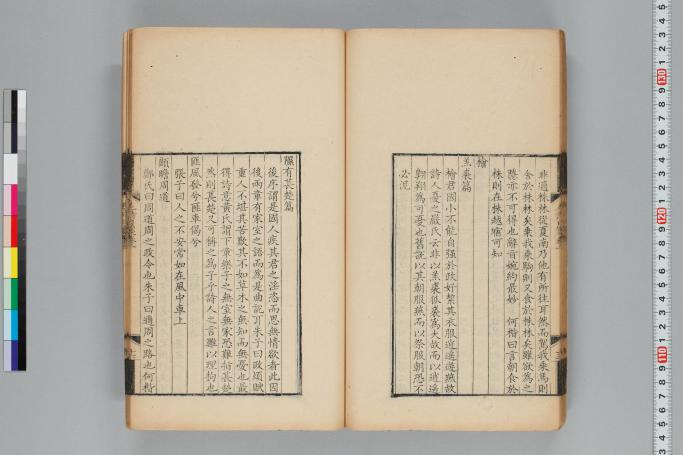 非適株林從夏南乃他有所往耳然而駕我乘馬則
舍於株林矣乘我乘駒則又食於株林矣雖欲為之
隱亦不可得也辭音婉約最妙 何楷曰言朝食於
株則在株越宿可知
檜
羔裘篇
檜君國小不能自强於政好潔其衣服逍遙遊燕故
詩人憂之嚴氏云非以羔裘狐裘為大故而以逍遙
翱翔為可憂也舊説以其朝服燕而以祭服朝恐不
必泥
隰有萇楚篇
後序謂是國人疾其君之淫恣而思無情慾者此因
後兩章有家室之語而為是曲説耳朱子曰政煩賦
重人不堪其苦歎其不如草木之無知而無憂也最
得詩意黃氏謂下章樂子之無室無家恐難指萇楚
然則萇楚又可稱之為子乎詩人之言難以理拘也
匪風發兮匪車偈兮
張子曰人之不安常如在風中車上
顧瞻周道
鄭氏曰周道周之政令也朱子曰適周之路也何楷